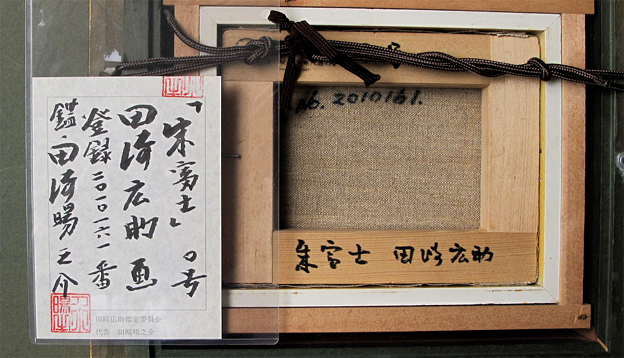 「朱富士」〇号
田崎広助画
登録二〇一〇一六一番
鑑・田崎暘之介
田崎広助鑑定委員会
代表 田崎暘之介
No. 2010161.
朱富士 田崎広助